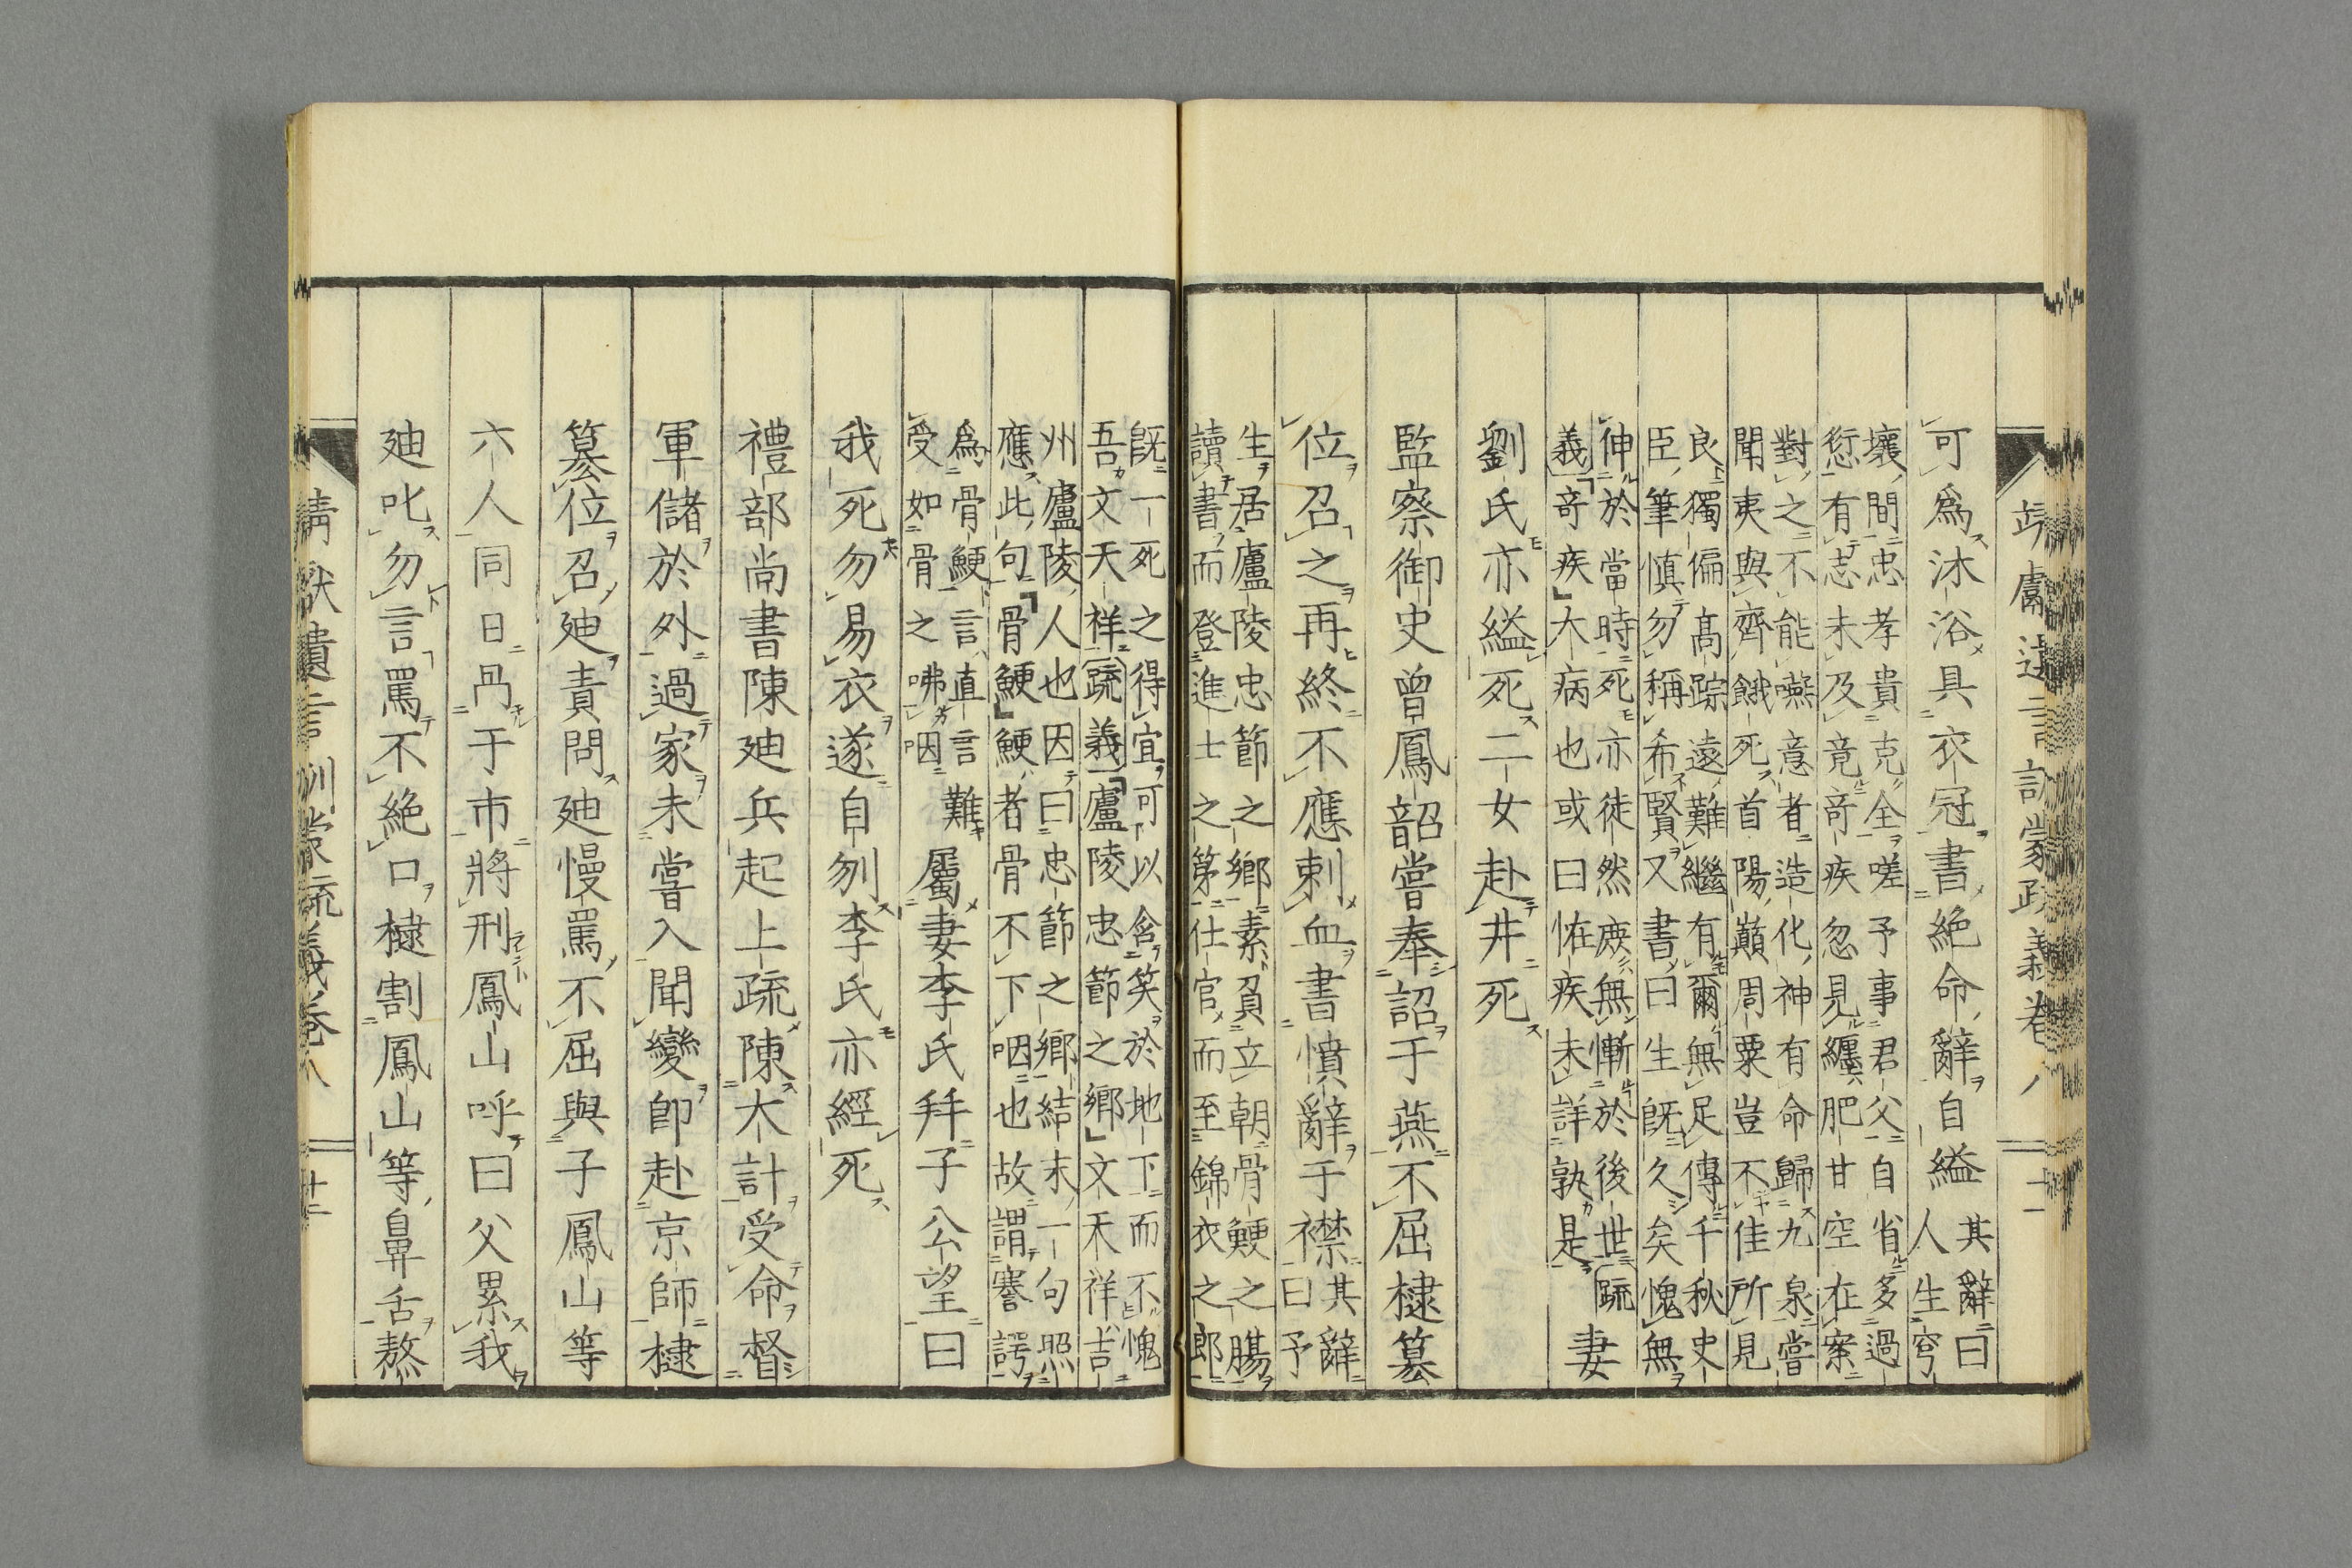 靖獻遺言訓蒙疏義卷八
可爲沐浴具衣冠書絶命辭自縊
其辭曰
人生穹
壤間忠孝貴克全嗟予事君父自省多過
愆有志未及竟奇疾忽見纏肥甘空在案
對之不能嚥意者造化神有命歸九泉嘗
聞夷與齊餓死首陽巓周粟豈不佳所見
良獨偏高踪遠難繼有爾無足傳千秋史
臣筆慎勿稱希賢又書曰生旣久矣愧無
伸於當時死亦徒然庶無慚於後世疏
義奇疾大病也或曰恠疾未詳孰是
妻
劉氏亦縊死二女赴井死
監察御史曾鳳韶嘗奉詔于燕不屈棣簒
位召之再終不應刺血書憤辭于襟
其辭
曰予
生居廬陵忠節之鄉素負立朝骨鯁之腸
讀書而登進士之第仕官而至錦衣之郎
旣一死之得宜可以含笑於地下而不愧
吾文天祥疏義廬陵忠節之鄉文天祥吉
州廬陵人也因曰忠節之鄉結末一句照
應此句骨鯁鯁者骨不下咽也故謂謇諤
爲骨鯁言直言難
受如骨之咈咽
屬妻李氏幷子公望曰
我死勿易衣遂自刎李氏亦經死
禮部尚書陳廸兵起上疏陳大計受命督
軍儲於外過家未嘗入聞變卽赴京師棣
簒位召廸責問廸慢罵不屈與子鳳山等
六人同日冎于市將刑鳳山呼曰父累我
廸叱勿言罵不絶口棣割鳳山等鼻舌熬
靖獻遺言訓蒙疏義卷八 十二